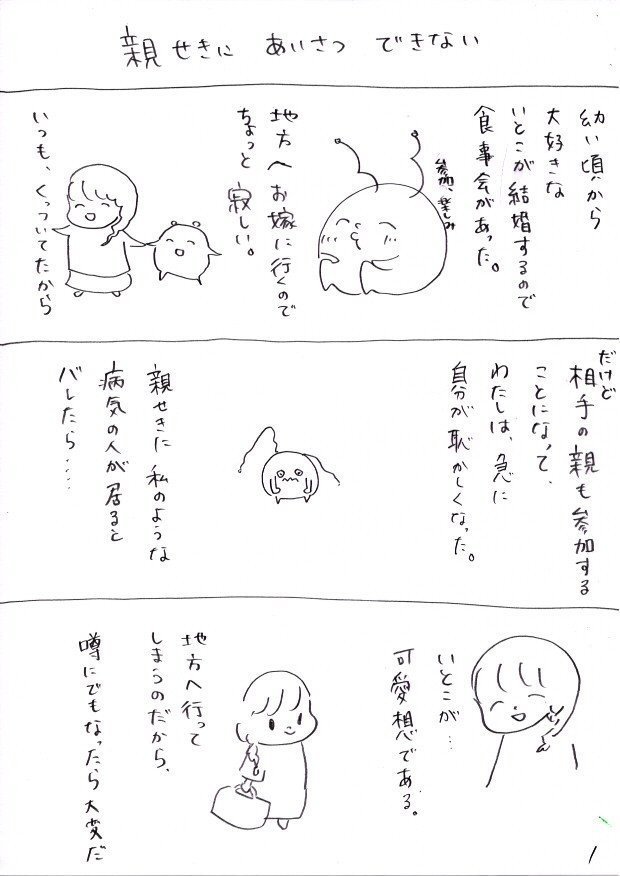 親せきに あいさつ できない
幼い頃から
大好きな
いとこが結婚するので
食事会があった。
参加、楽しみ
地方へお嫁に行くので
ちょっと 寂しい。
いつも、くっついてたから
だけど
相手の親も参加する
ことになって、
わたしは、急に
自分が恥かしくなった。
親せきに 私のような
病気の人が居ると
バレたら……
いとこが…
可愛想である。
地方へ行って
しまうのだから、
噂にでもなったら大変だ
1